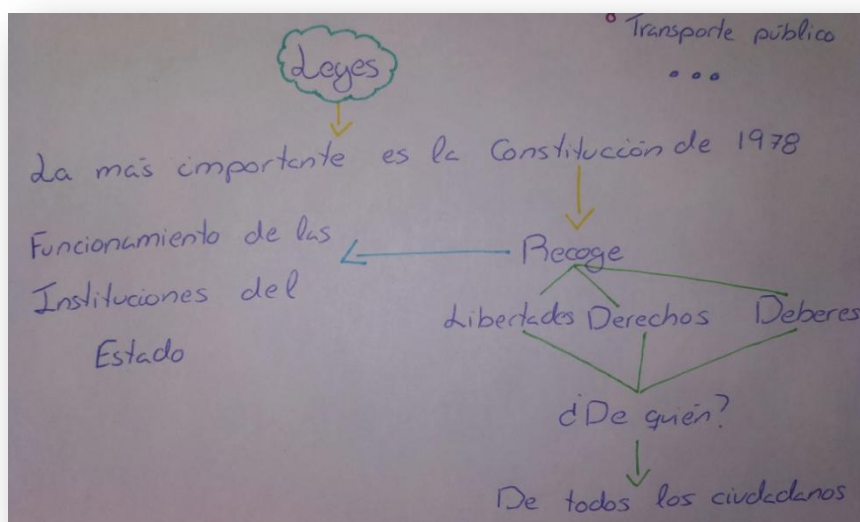 Transporte público
...
Leyes
La más importante es la Constitución de 1978
Recoge
Funcionamiento de las
Instituciones del
Estado
Libertades Derechos Deberes
¿De quién?
De todos los ciudadanos